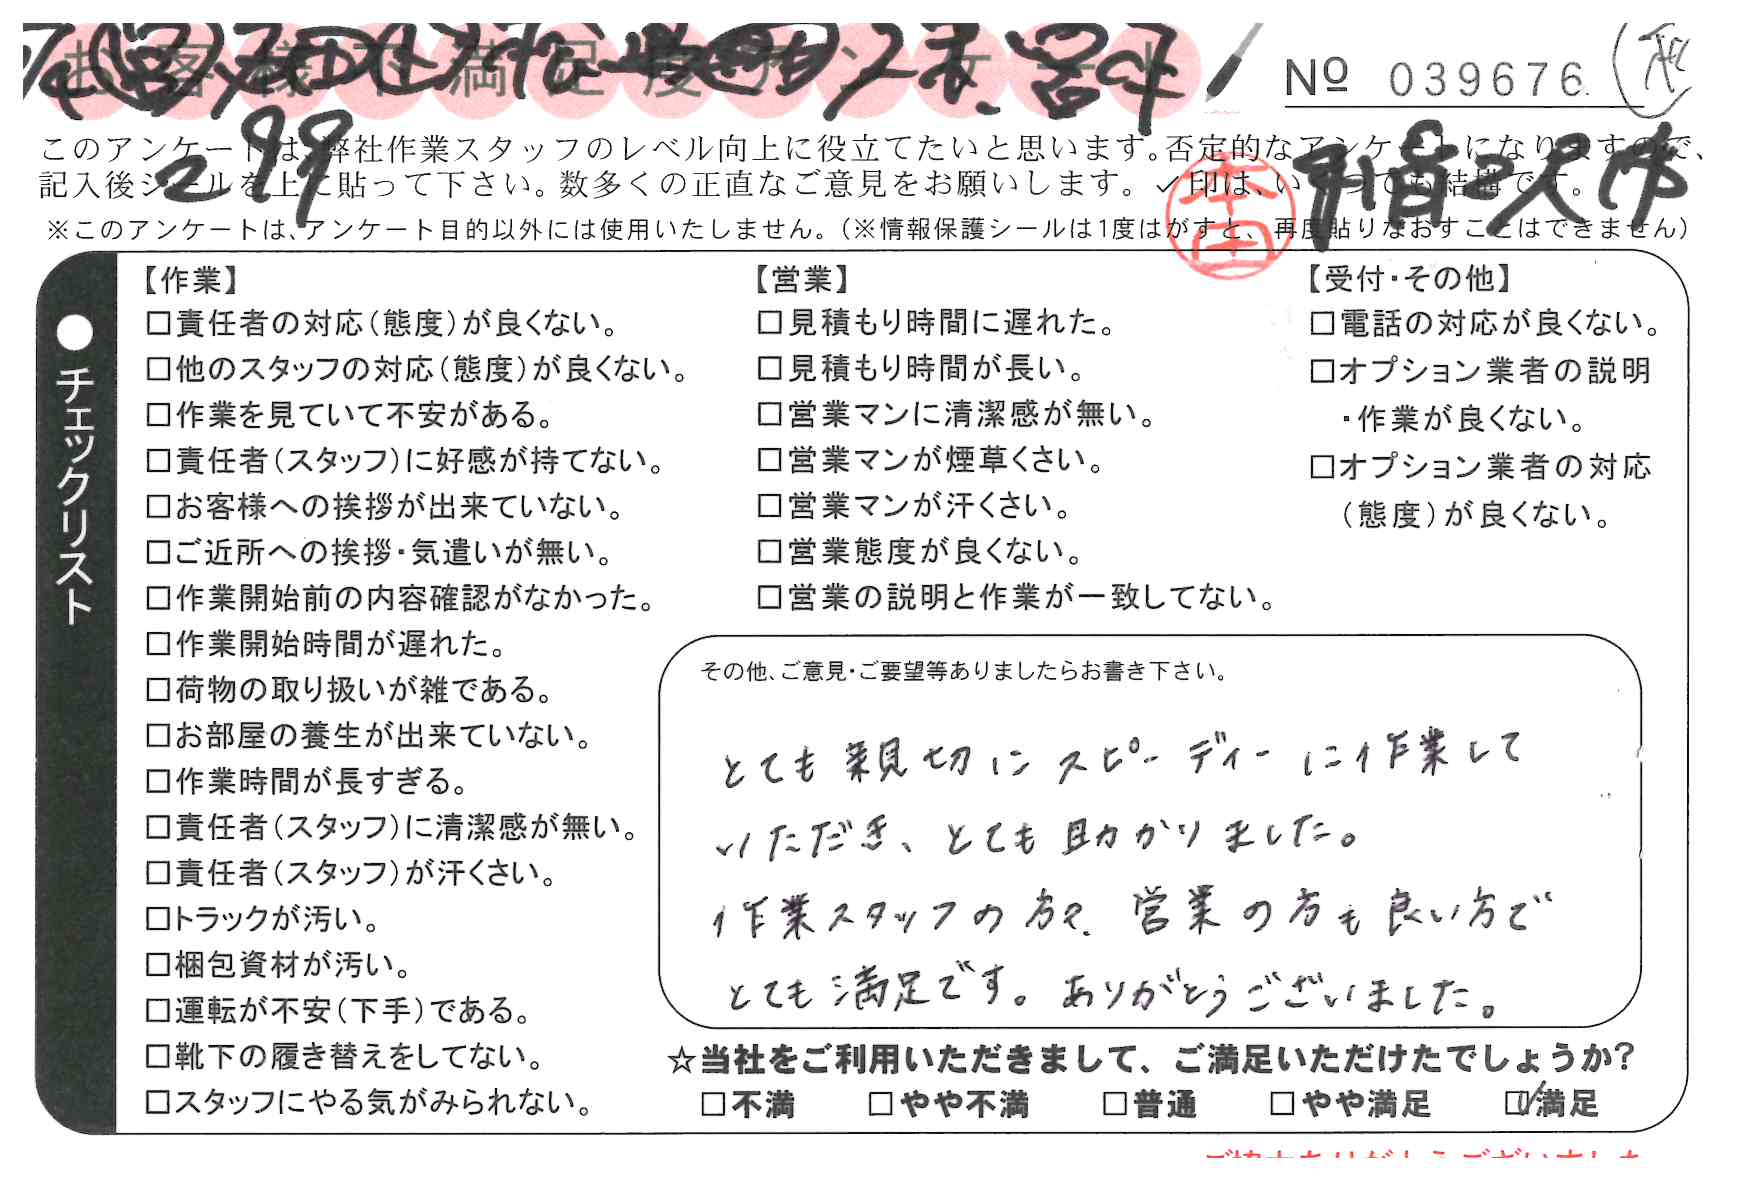 お客様不満足度アンケート
Nº 039676
このアンケートは、弊社作業スタッフのレベル向上に役立てたいと思います。否定的なアンケートになりますので、
記入後シールを上に貼って下さい。数多くの正直なご意見をお願いします。✓印は、いくつでも結構です。
※このアンケートは、アンケート目的以外には使用いたしません。(※情報保護シールは1度はがすと、再度貼りなおすことはできません)
99
本田
●チェックリスト
【作業】
□責任者の対応(態度)が良くない。
□他のスタッフの対応(態度)が良くない。
□作業を見ていて不安がある。
□責任者(スタッフ)に好感が持てない。
□お客様への挨拶が出来ていない。
□ご近所への挨拶・気遣いが無い。
□作業開始前の内容確認がなかった。
□作業開始時間が遅れた。
□荷物の取り扱いが雑である。
□お部屋の養生が出来ていない。
□作業時間が長すぎる。
□責任者(スタッフ)に清潔感が無い。
□責任者(スタッフ)が汗くさい。
□トラックが汚い。
□梱包資材が汚い。
□運転が不安(下手)である。
□靴下の履き替えをしてない。
□スタッフにやる気がみられない。
【営業】
□見積もり時間に遅れた。
□見積もり時間が長い。
□営業マンに清潔感が無い。
□営業マンが煙草くさい。
□営業マンが汗くさい。
□営業態度が良くない。
□営業の説明と作業が一致してない。
【受付・その他】
□電話の対応が良くない。
□オプション業者の説明
・作業が良くない。
□オプション業者の対応
(態度)が良くない。
その他、ご意見・ご要望等ありましたらお書き下さい。
とても親切にスピーディーに作業して
いただき、とても助かりました。
作業スタッフの方々、営業の方も良い方で
とても満足です。ありがとうございました。
☆当社をご利用いただきまして、ご満足いただけたでしょうか?
□不満 □やや不満 □普通 □やや満足 ☑満足
ご協力ありがとうございました